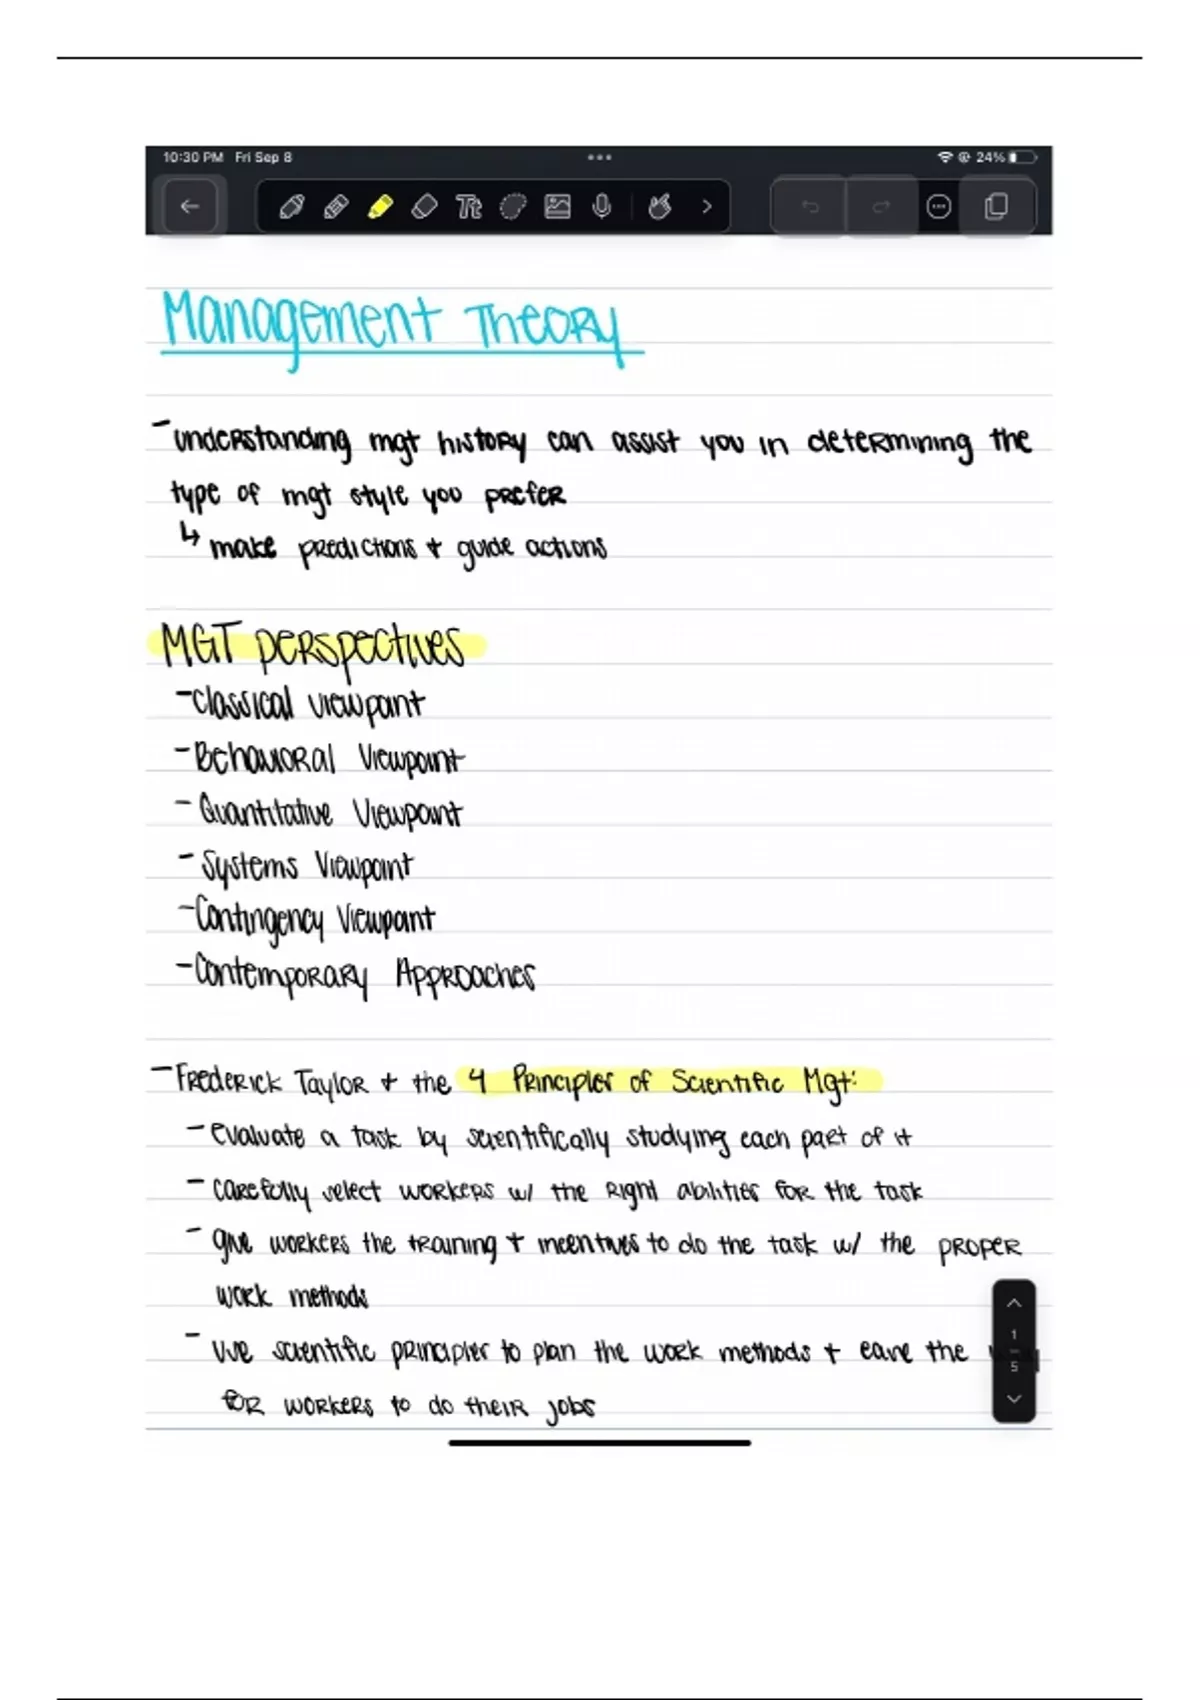 10:30 PM Fri Sep 8
24%
Tt
Management Theory
- understanding mgt history can assist you in determining the
type of mgt style you prefer
↳ make predictions + guide actions
MGT perspectives
- Classical viewpoint
- Behavioral Viewpoint
- Quantitative Viewpoint
- Systems Viewpoint
- Contingency Viewpoint
- Contemporary Approaches
- Frederick Taylor + the 4 Principles of Scientific Mgt:
- evaluate a task by scientifically studying each part of it
- carefully select workers w/ the right abilities for the task
- give workers the training + incentives to do the task w/ the proper
work methods
- use scientific principles to plan the work methods + ease the
for workers to do their jobs
1
5